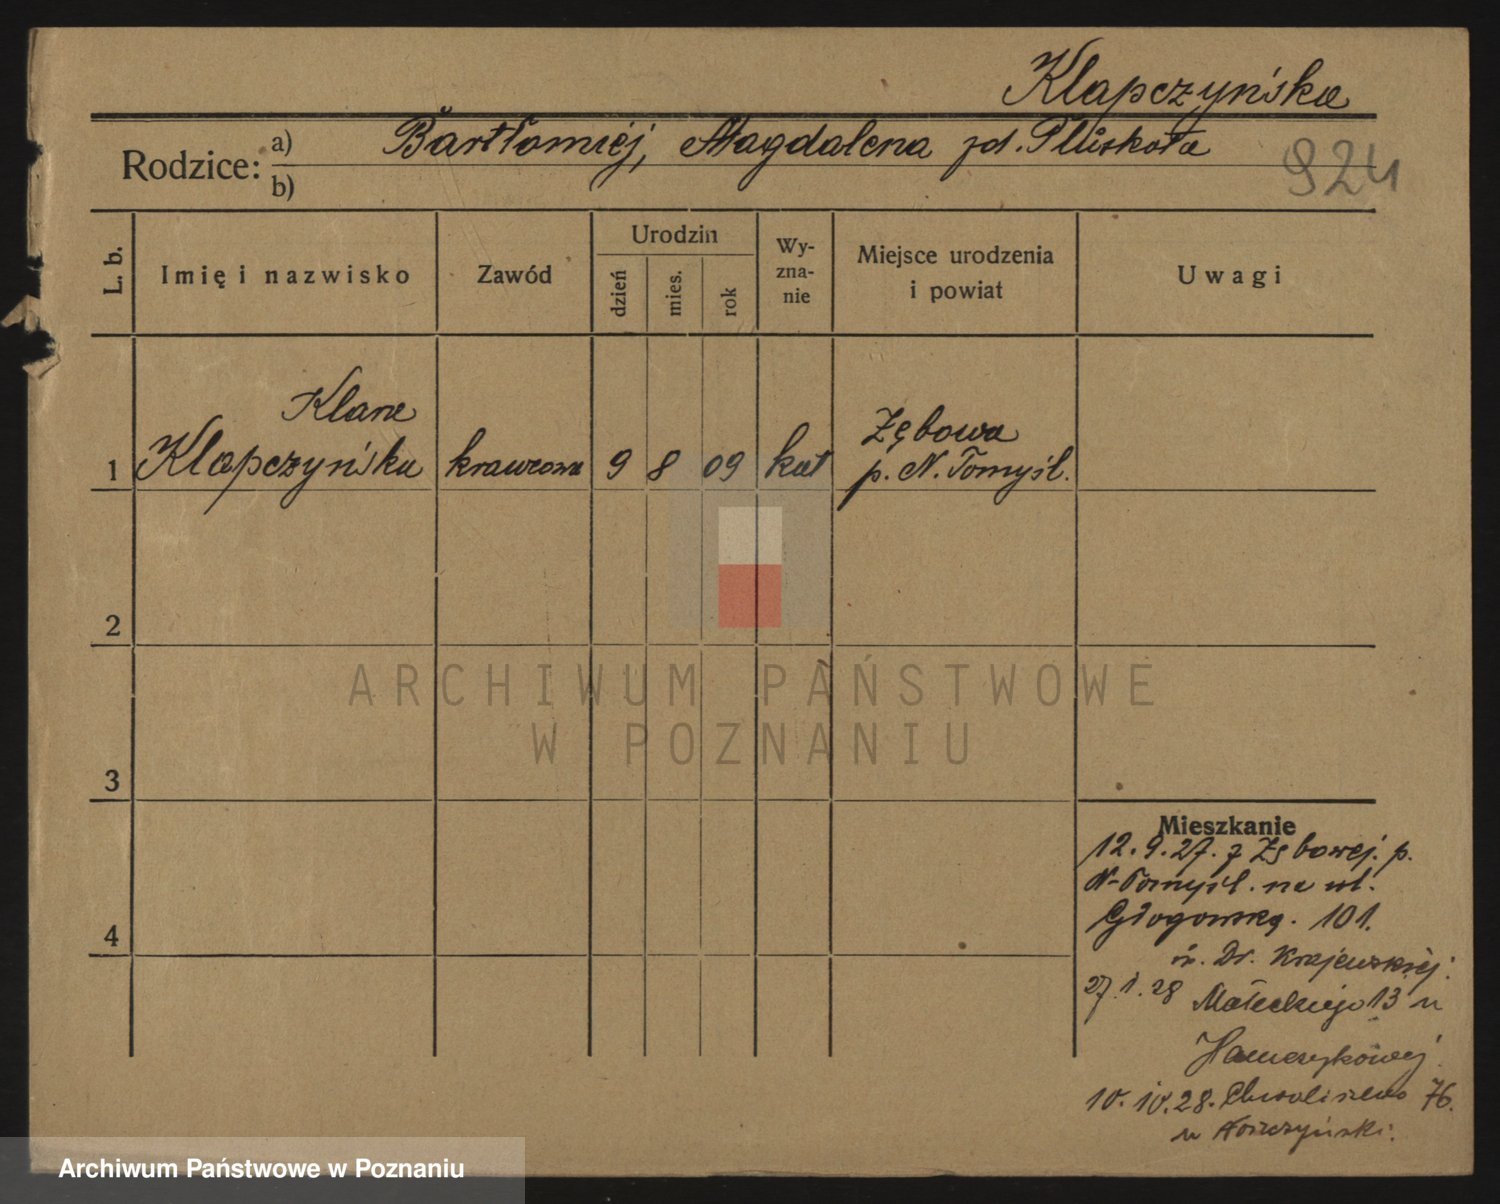 Klapczyńska
Rodzice: a) Bartłomiej, Magdalena zd. Pluskota
b)
924
L. b.
Imię i nazwisko
Zawód
Urodzin
dzień
mies.
rok
Wy-
zna-
nie
Miejsce urodzenia
i powiat
Uwagi
Klara
1 Klapczyńska krawcowa 9 8 09 kat Zębowa
p. N. Tomyśl.
2
3
4
ARCHIWUM PAŃSTWOWE
W POZNANIU
Mieszkanie
12.9.27. z Zębowej. p.
N-Tomyśl. na ul.
Głogowską. 101.
u. Dr. Krajewskiej.
27.1.28 Małeckiego 13 u
10.10.28. Chwaliszewo 76.
u
Archiwum Państwowe w Poznaniu